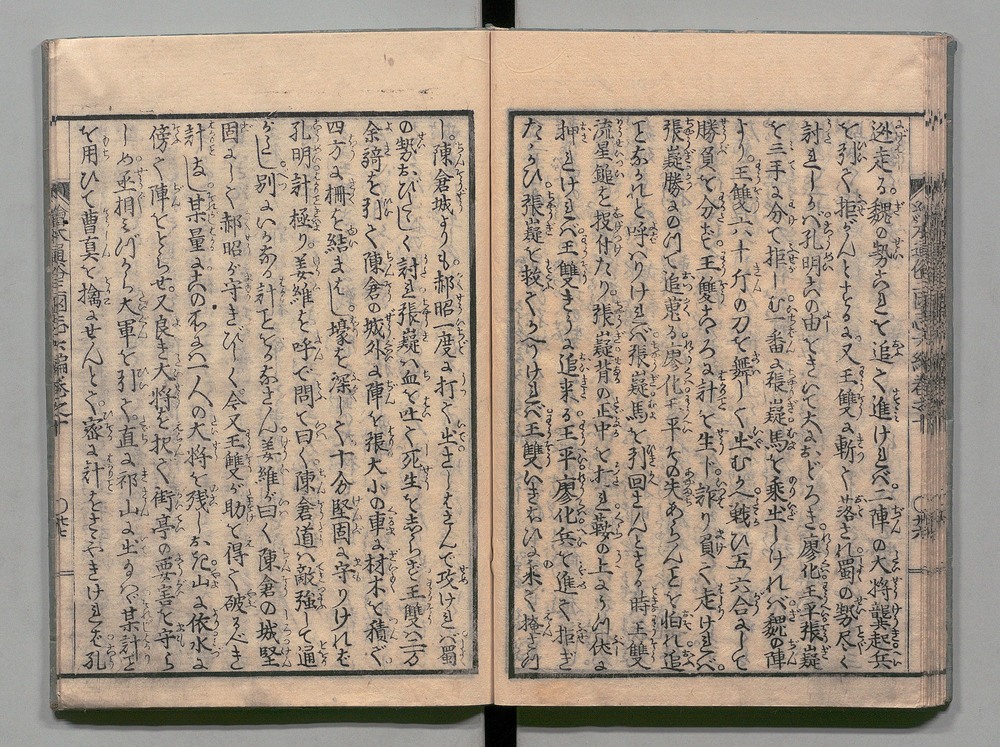 迯走る。魏の勢これを追て進けれバ。二陣の大将龔起兵
を引て拒がんとするに又王雙に斬て落され蜀の勢尽く
討れしかバ孔明此由をきいて大におどろき。廖化王平張嶷
を三手に分て拒しむ一番に張嶷馬を乗出しけれバ魏の陣
より。王雙六十斤の刀を舞して出むかへ戦ひ五六合にして
勝負を分たず王雙こゝろに計を生ド。詐り負て走けれバ。
張嶷勝にのつて追蒐る廖化王平その失あらんことを怕れ追
ことなかれと呼ハりけれバ。張嶷馬を引回さんとする時王雙
流星鎚を投付たり。張嶷背の正中を打れ鞍の上にうつ伏に
押しけれバ王雙きうに追来る王平廖化兵を進て拒ぎ
たゝかひ張嶷を救てかへりけれバ王雙いきおひに来て掩きたり
し。陳倉城よりも郝昭一度に打て出さしはさんで攻けれバ蜀
の勢おびたゝしく討れ張嶷ハ血を吐て死生をしらず王雙ハ二万
余騎を引て陳倉の城外に陣を張大小の車に材木を積て
四方に柵を結まハし壕を深して十分堅固に守りけれバ
孔明計極り。姜維を呼で問て曰く陳倉道ハ敵強して通
がたし別にいかなる計ことをかなさん姜維が曰く陳倉の城堅
固にして郝昭が守きびしく。今又王雙が助を得て破るべき
計なし某量るにこの所へ一人の大将を残しおき山に依水に
傍て陣をとらせ。又良き大将を択て街亭の要害を守ら
しめ丞相ミづから大軍を引て。直に祁山に出なバ。某計こと
を用ひて曹真を擒にせんとて密に計をさゝやきけれバ孔